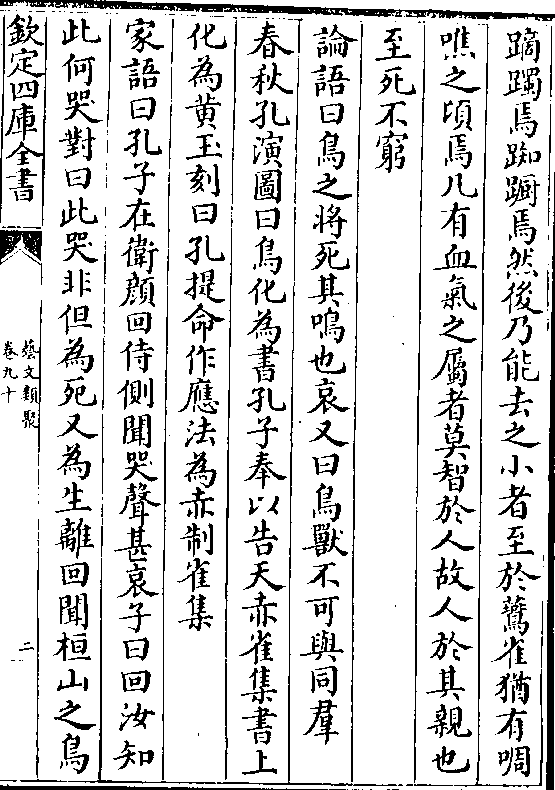 蹢躅焉踟蹰焉然後乃能去之小者至於鷰雀猶有啁
噍之頃焉凡有血氣之屬者莫智於人故人於其親也
至死不窮
論語曰鳥之將死其鳴也哀又曰鳥獸不可與同羣
春秋孔演圖曰鳥化為書孔子奉以告天赤雀集書上
化為黄玉刻曰孔提命作應法為赤制雀集
家語曰孔子在衛顔回侍側聞哭聲甚哀子曰回汝知
此何哭對曰此哭非但為死又為生離回聞桓山之鳥
欽定四庫全書
藝文類聚
卷九十
二